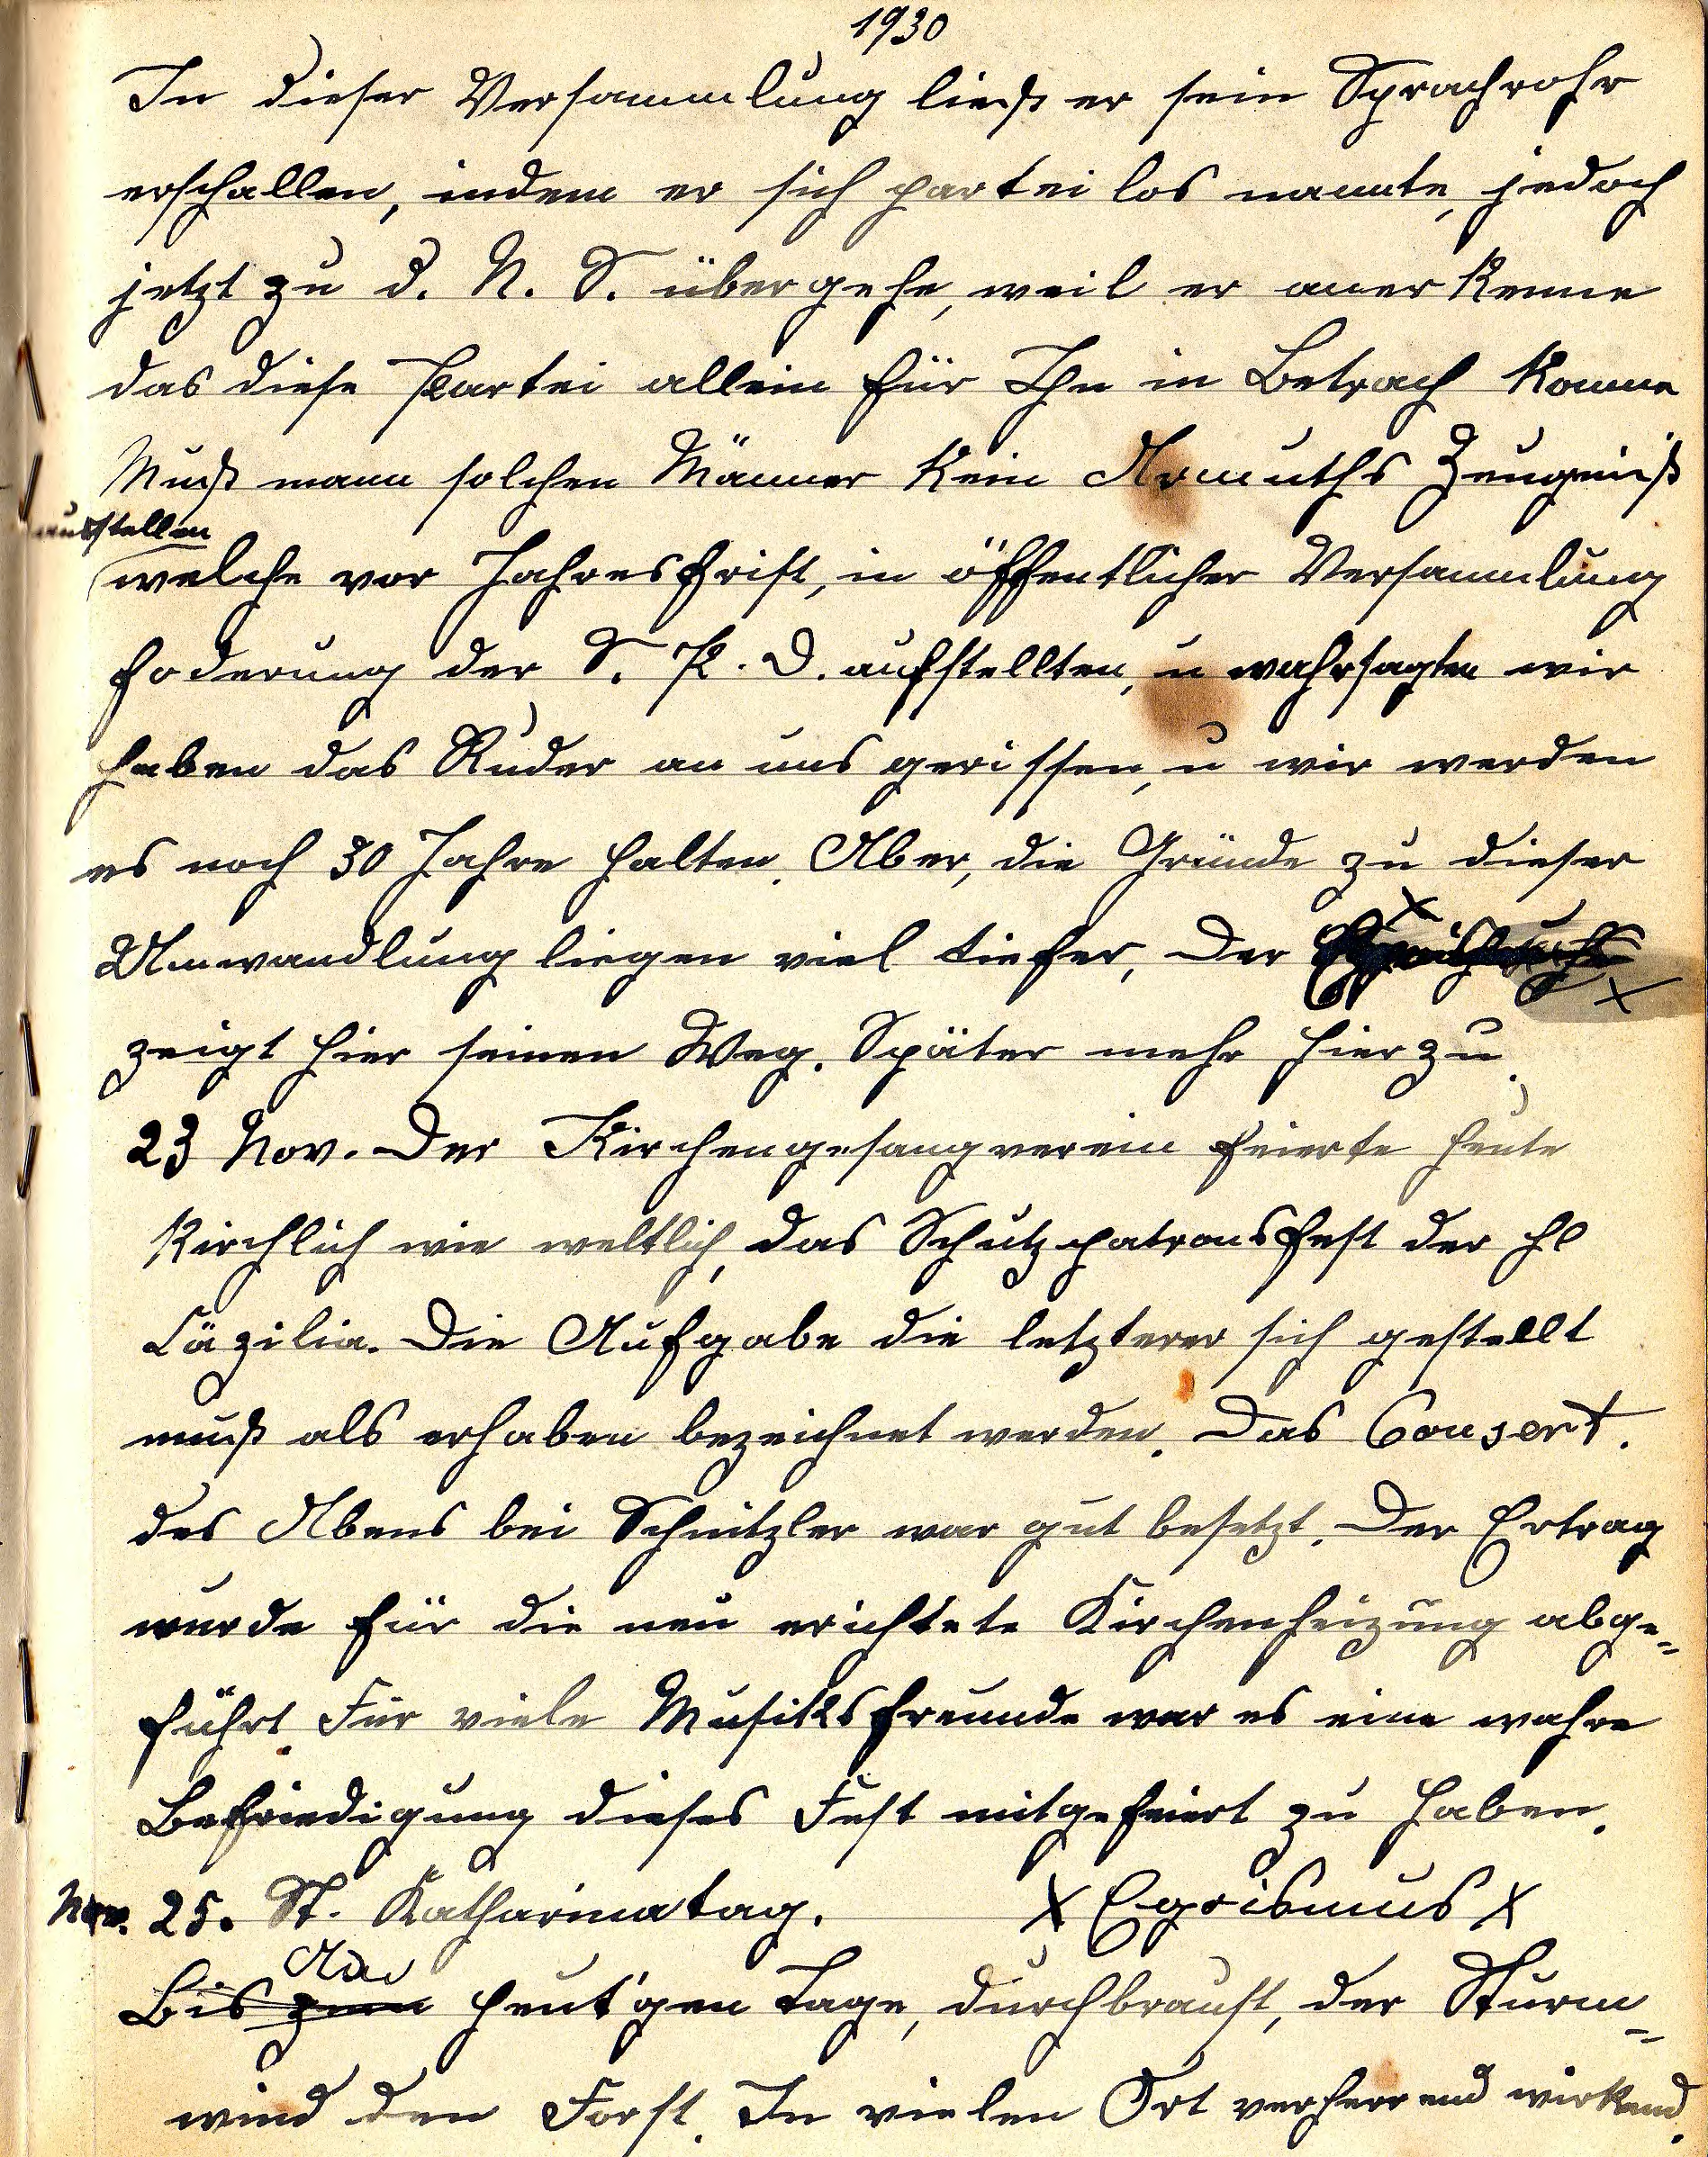 1930
In dieser Versammlung ließ er sein Sprachrohr
erschallen, indem er sich partei los nannte, jedoch
jetzt zu d. N. S. übergehe, weil er anerkenne
das diese Partei allein für Ihn in Betrach komme
Muß mann solchen Männer kein Armuths Zeugniß
ausstellen
welche vor Jahresfrist, in öffentlicher Versammlung
Foderung der S. P. D. aufstellten, u wahrsagten wir
haben das Ruder an uns gerissen, u wir werden
es noch 30 Jahre halten. Aber, die Gründe zu dieser
Umwandlung liegen viel tiefer, Der x x
zeigt hier seinen Weg. Später mehr hierzu.
23 Nov. Der Kirchengesangverein feierte heute
kirchlich wie weltlich, das Schutzpatronsfest der hl
Cäzilia. Die Aufgabe die letzterer sich gestellt
muß als erhaben bezeichnet werden. Das Consert.
des Abens bei Schnitzler war gut besetzt. Der Ertrag
wurde für die neu erichtete Kirchenheizung abge-
führt. Für viele Musiksfreunde war es eine wahre
Befriedigung dieses Fest mitgefeiert zu haben.
Nov. 25. St. Katharinatag. x Egoismus x
Am
Bis zum heut'gen Tage, durchbraust, der Sturm-
wind den Forst. In vielen Ort verherrend wirkend.